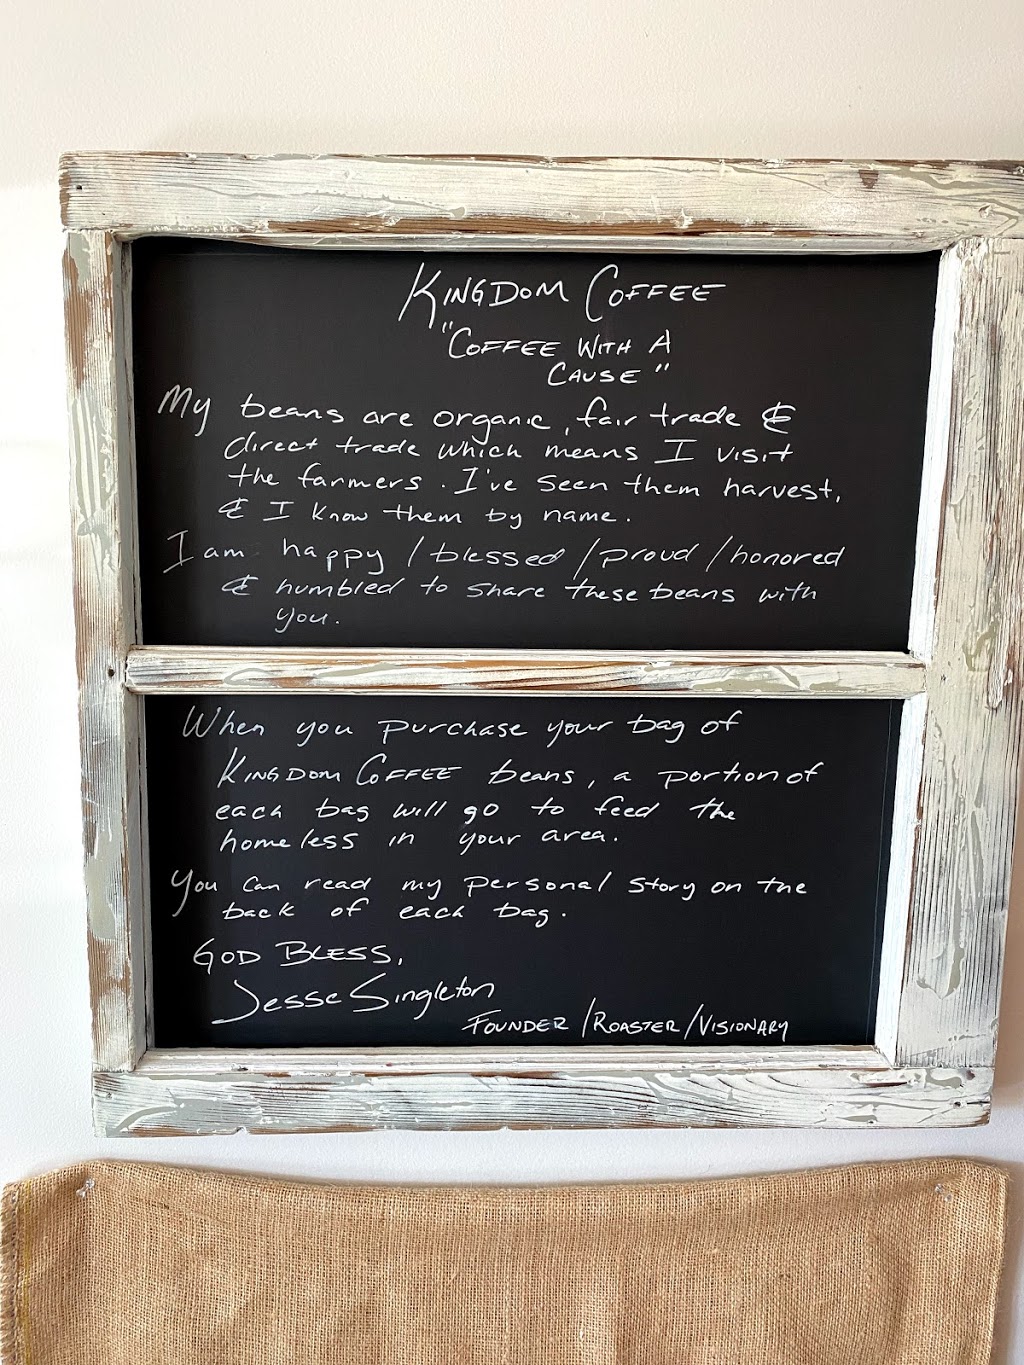 KINGDOM COFFEE
"COFFEE WITH A
CAUSE"
My beans are organic, fair trade &
direct trade which means I visit
the farmers. I've seen them harvest,
& I know them by name.
I am happy/blessed/proud/honored
& humbled to share these beans with
you.
When you purchase your bag of
KINGDOM COFFEE beans, a portion of
each bag will go to feed the
homeless in your area.
You can read my personal story on the
back of each bag.
GOD BLESS,
Jesse Singleton
FOUNDER/ROASTER/VISIONARY